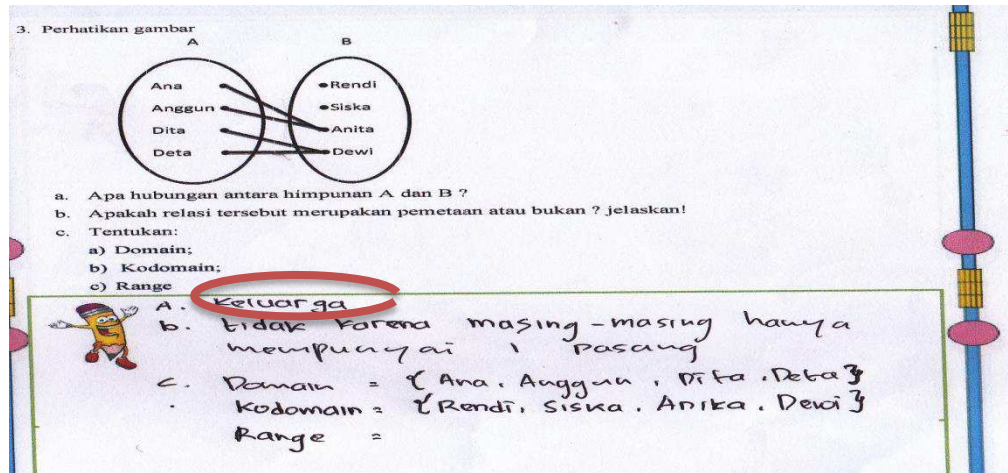 3. Perhatikan gambar
A B
Ana •Rendi
Anggun •Siska
Dita •Anita
Deta •Dewi
a. Apa hubungan antara himpunan A dan B ?
b. Apakah relasi tersebut merupakan pemetaan atau bukan ? jelaskan!
c. Tentukan:
a) Domain;
b) Kodomain;
c) Range
A. Keluarga
b. tidak karena masing-masing hanya
mempunyai 1 pasang
c. Domain = {Ana, Anggun, Dita, Deta}
Kodomain = {Rendi, Siska, Anita, Dewi}
Range =